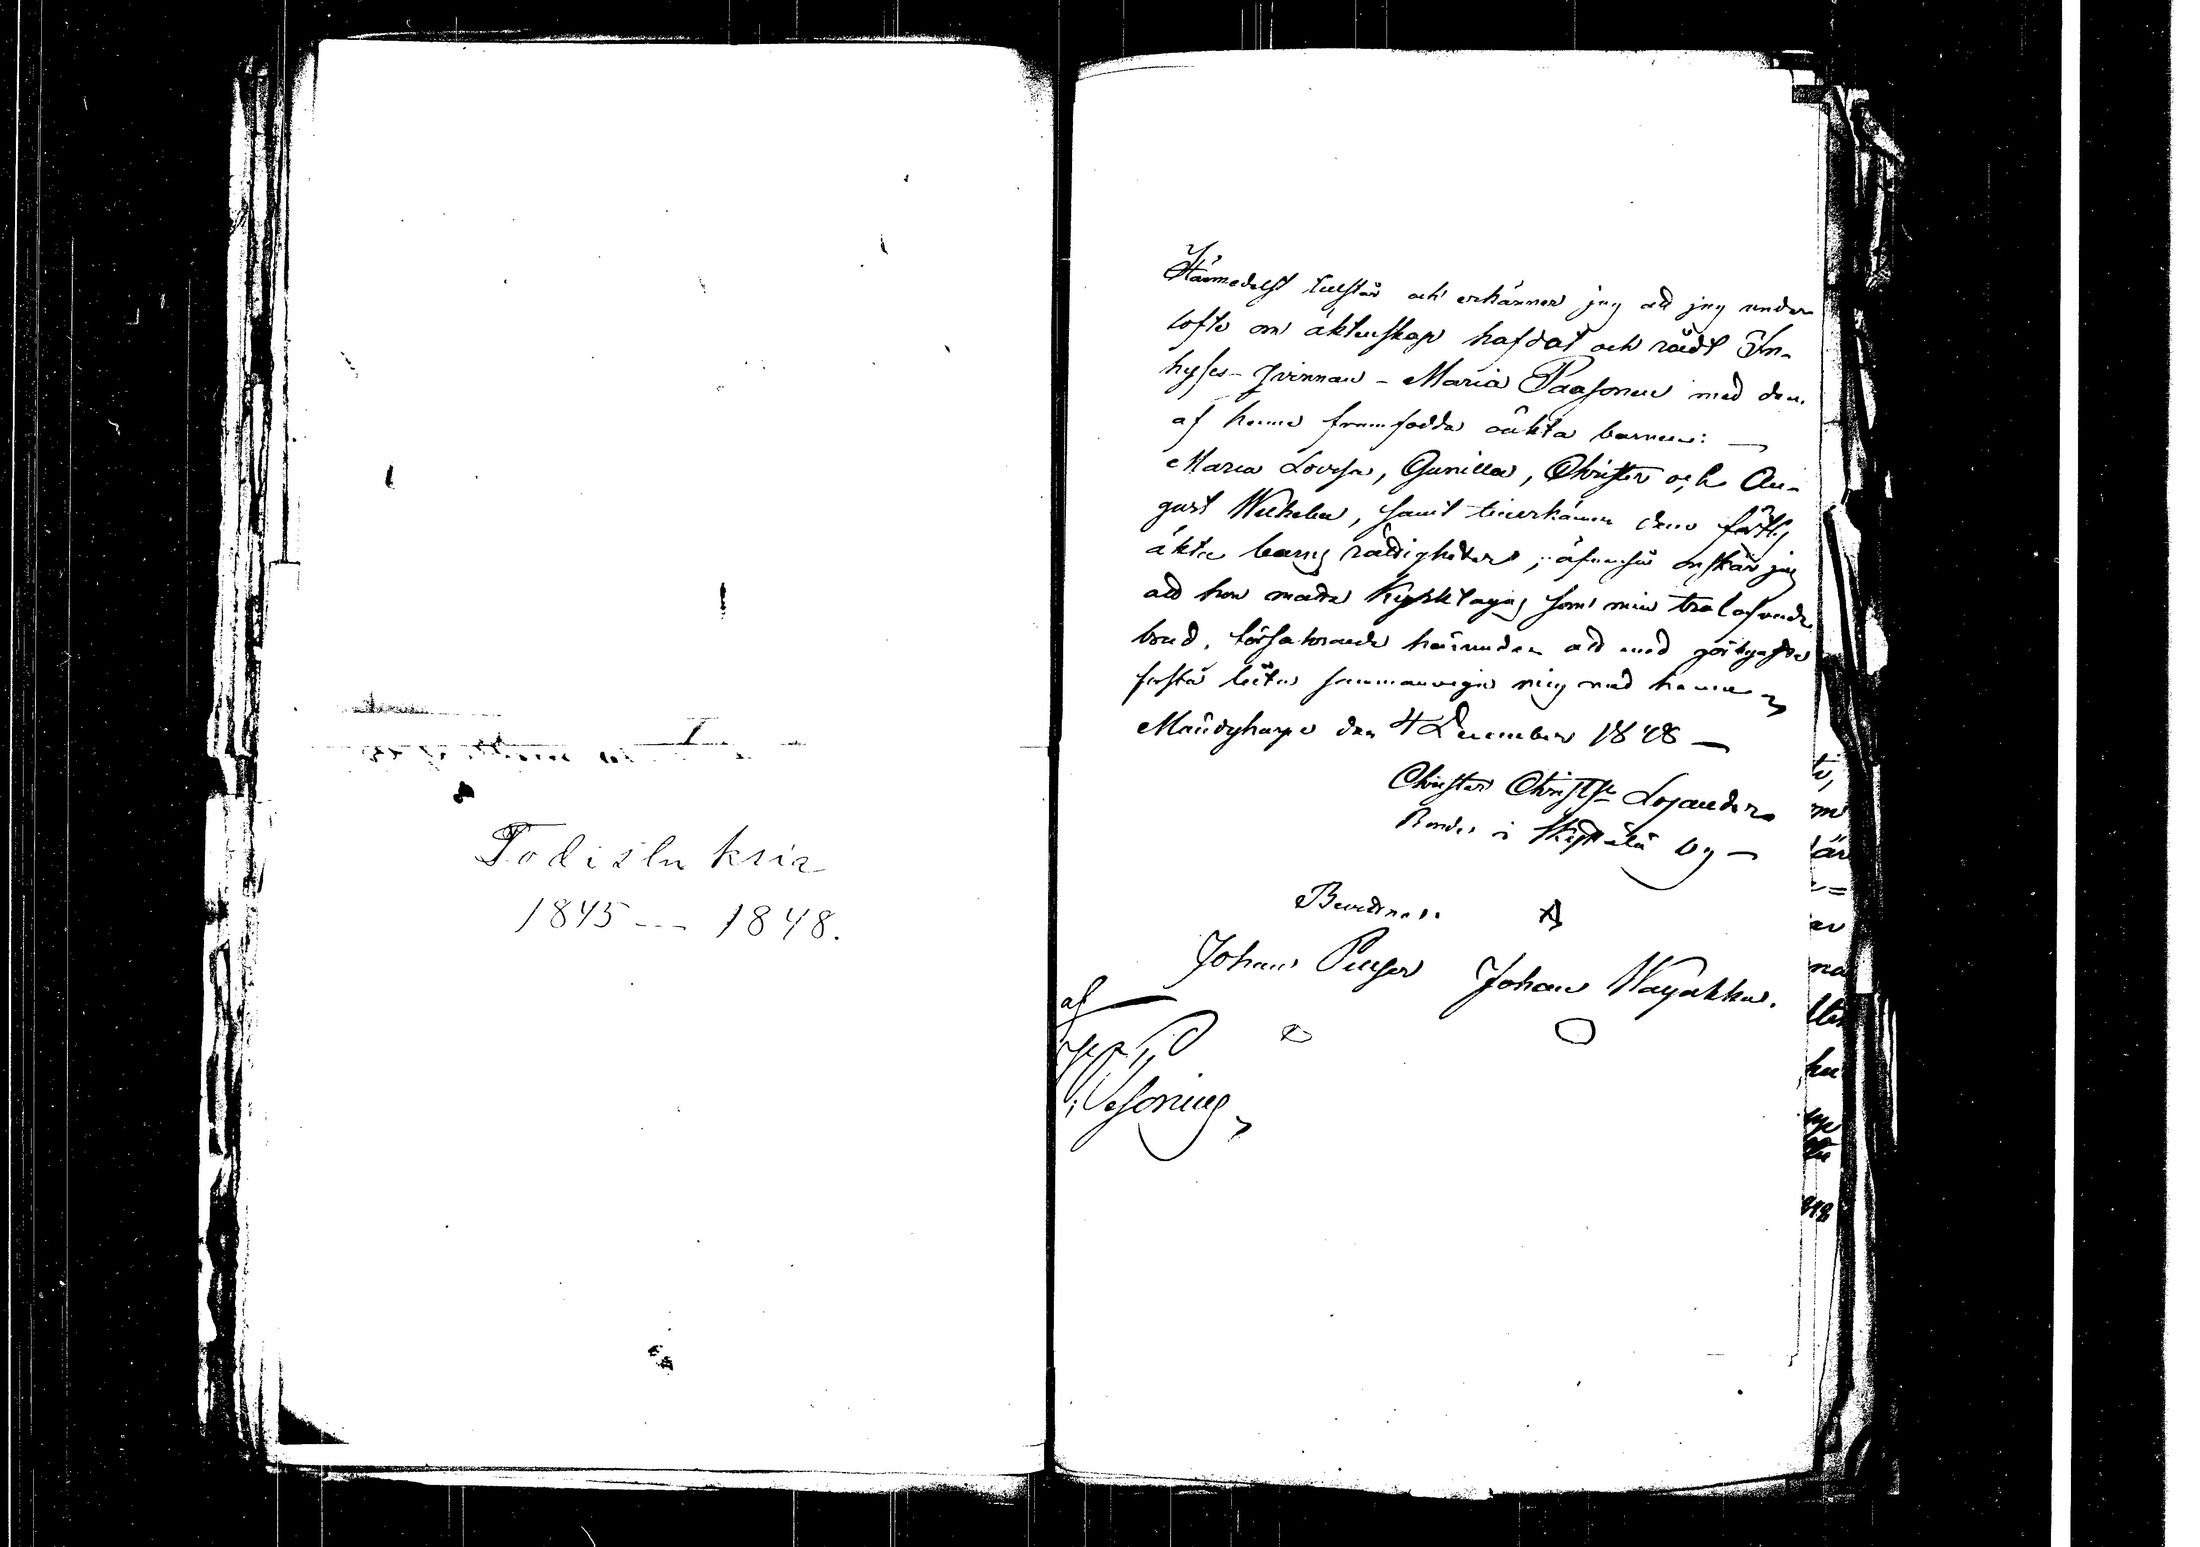 Todistuksia
1845 --- 1848.
Härmedelst tillstår och erkänner jag att jag under
lofte om äktenskap häfdat och rådt In-
hyses-qvinnan - Maria Paasonen med den
af henne framfödda oäkta barnen: —
Maria Lovisa, Gunilla, Christer och Au-
gust Wilhelm, samt tillerkänner dem
äkta barns rättigheter; äfvensom önskar jag
att hon måtte kyrktagas som min trolofvade
brud, försäkrande härunder att med görligaste
första låta sammanviga mig med henne
Mäntyharju den 4 December 1848 —
Christer Christsn Lojander
Bonde i by —
Johan Johan Wayakka.
af